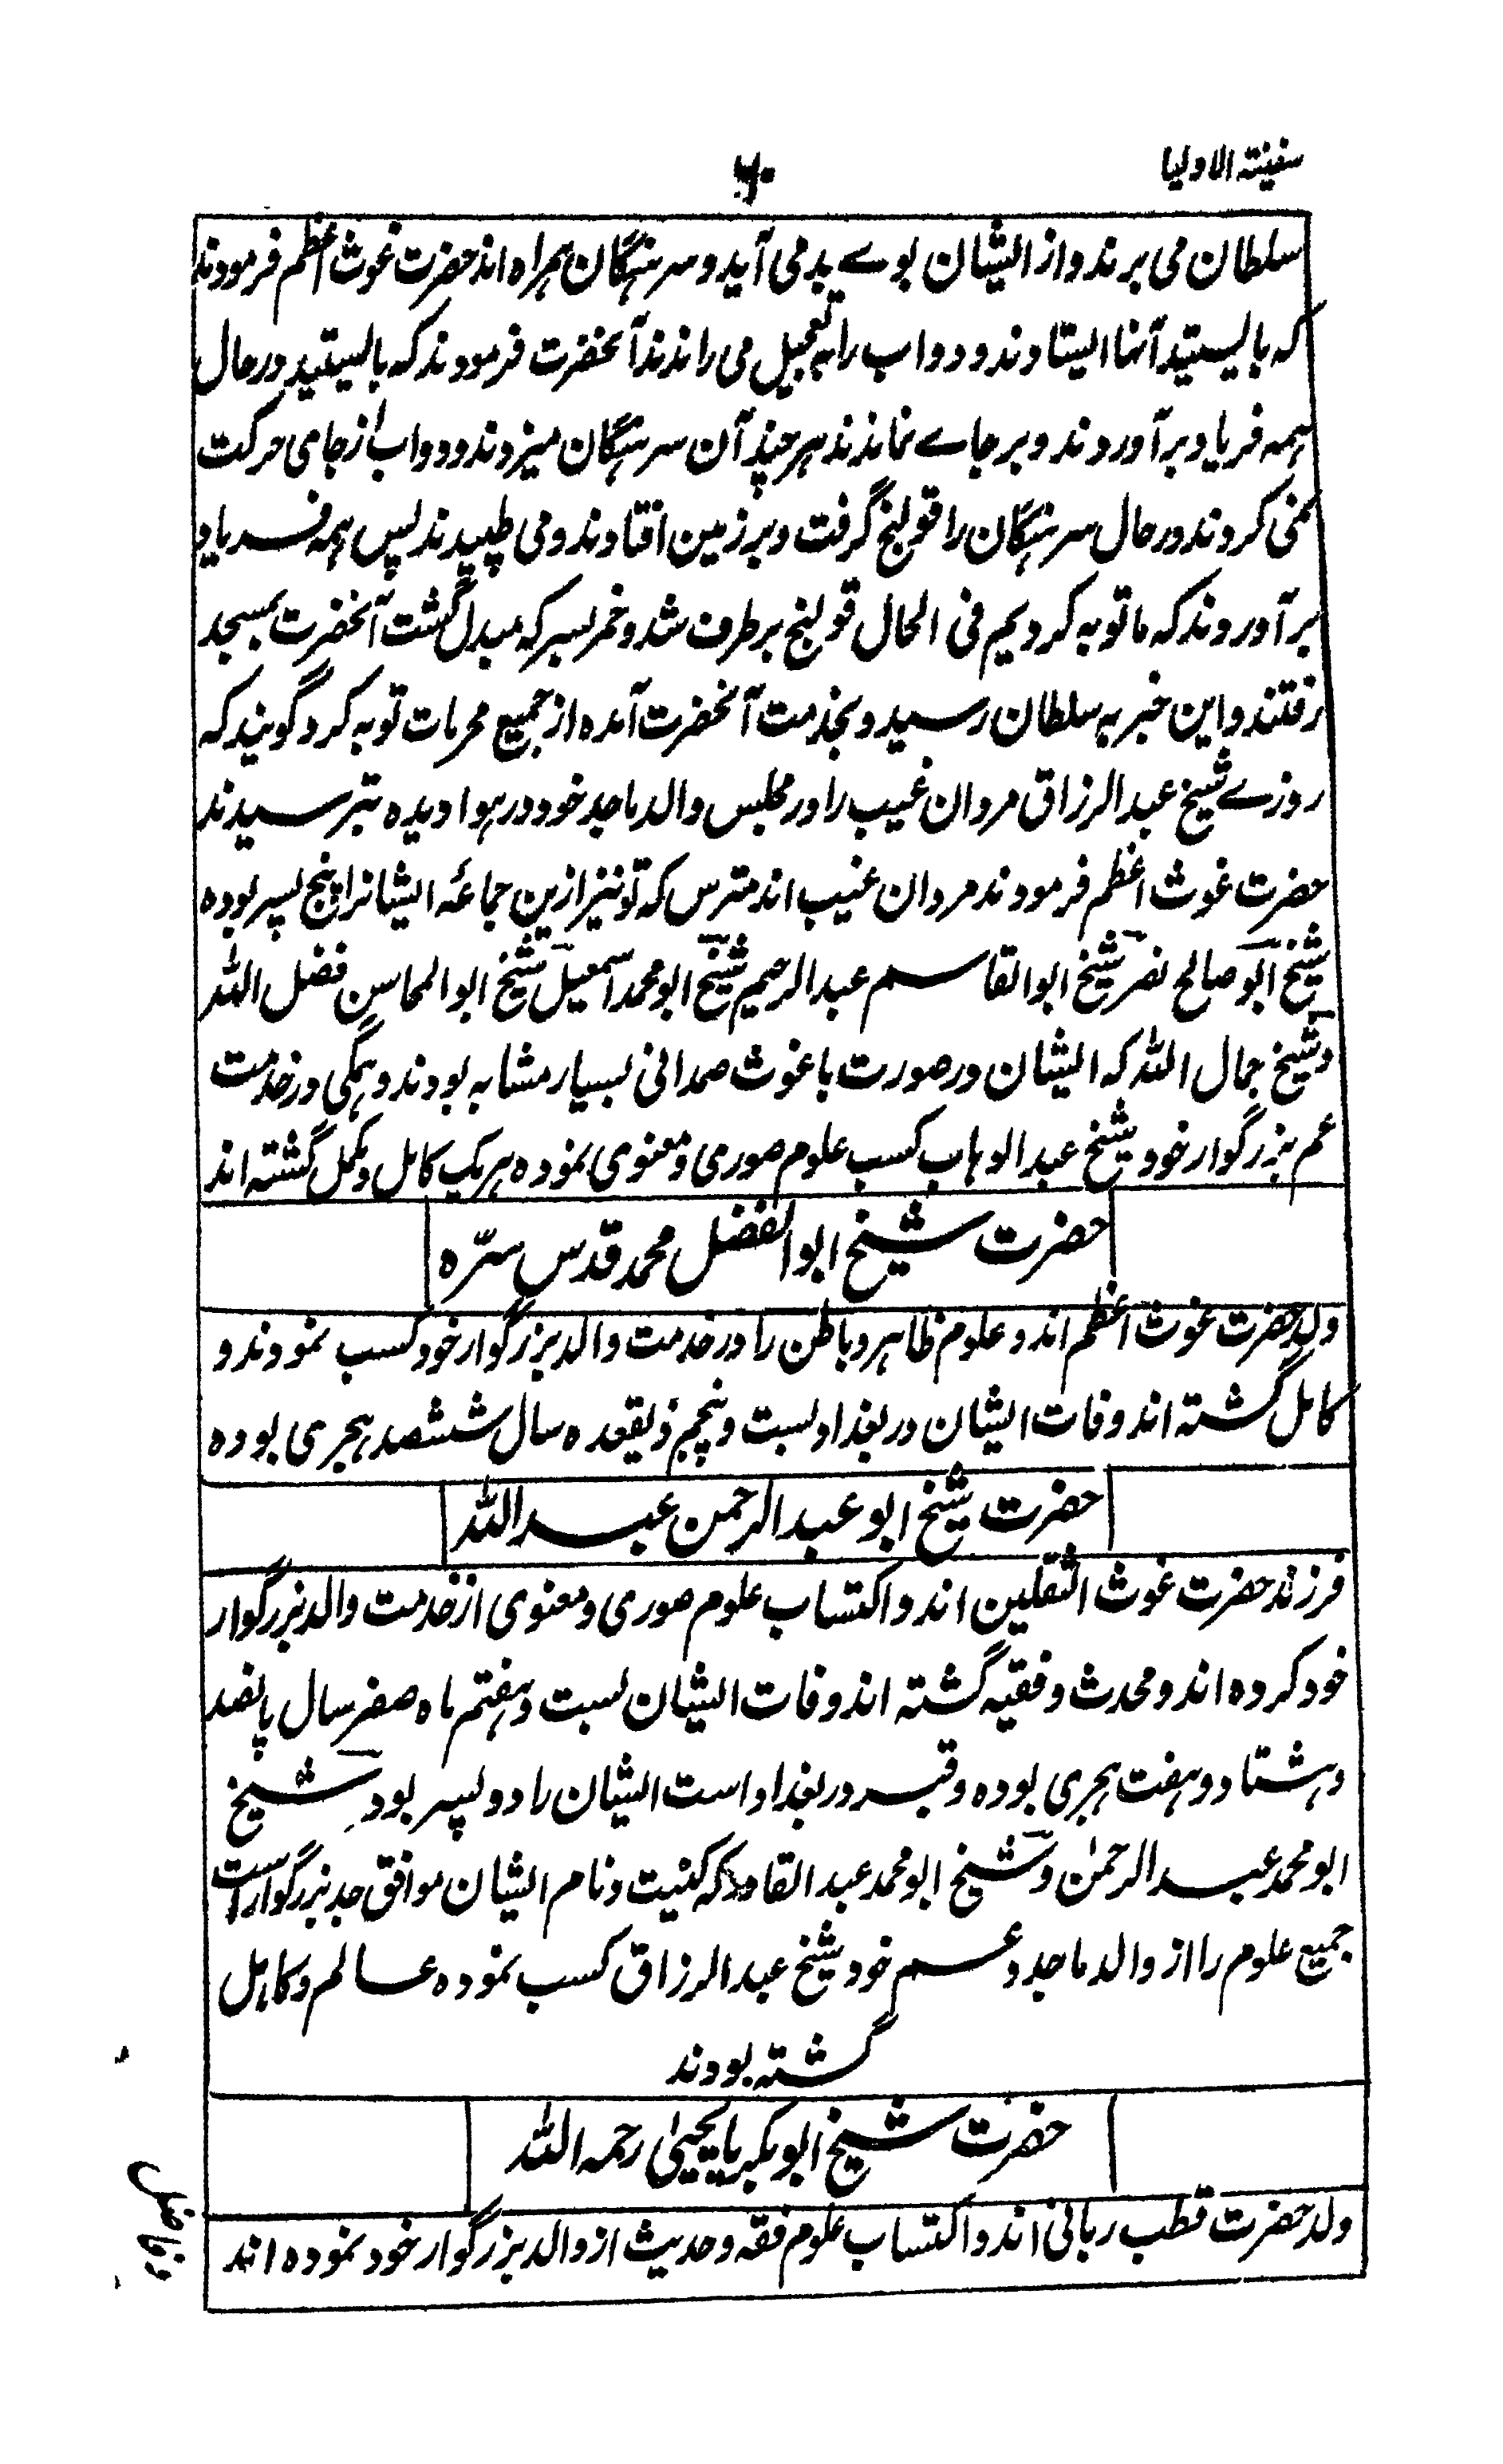 سفینۃ الاولیا
۶۰
سلطان می برند و از ایشان بوے بد می آید و سرہنگان ہمراہ اند حضرت غوث اعظم فرمودند
کہ بایستید آنہا ایستادند و دواب را بہ تعجیل می راندند آنحضرت فرمودند کہ بایستید در حال
ہمہ فریاد برآوردند و بر جاے نماندند ہر چند آن سرہنگان میزدند و دواب از جا می حرکت
نمی کردند در حال سرہنگان را قولنج گرفت و بر زمین افتادند و می طپیدند پس ہمہ فریاد
برآوردند کہ ما توبہ کردیم فی الحال قولنج برطرف شد و خمر بسرکہ مبدل گشت آنحضرت بمسجد
رفتند و این خبر بہ سلطان رسید و بخدمت آنحضرت آمدہ از جمیع محرمات توبہ کرد گویند کہ
روزے شیخ عبد الرزاق مردان غیب را در مجلس والد ماجد خود در ہوا دیدہ بترسیدند
حضرت غوث اعظم فرمودند مردان غیب اند مترس کہ تو نیز ازین جماعۂ ایشانرا پنج پسر بودہ
شیخ ابو صالح نصر شیخ ابو القاسم عبد الرحیم شیخ ابو محمد اسمعیل شیخ ابو المحاسن فضل اللہ
و شیخ جمال اللہ کہ ایشان در صورت با غوث صمدانی بسیار مشابہ بودند و ہمگی در خدمت
عم بزرگوار خود شیخ عبد الوہاب کسب علوم صوری و معنوی نمودہ ہر یک کامل و مکمل گشتہ اند
حضرت شیخ ابو الفضل محمد قدس سرّہ
ولد حضرت غوث اعظم اند و علوم ظاہر و باطن را در خدمت والد بزرگوار خود کسب نمودند و
کامل گشتہ اند وفات ایشان در بغداد بست و پنجم ذیقعدہ سال ششصد ہجری بودہ
حضرت شیخ ابو عبد الرحمن عبد اللہ
فرزند حضرت غوث الثقلین اند و اکتساب علوم صوری و معنوی از خدمت والد بزرگوار
خود کردہ اند و محدث و فقیہ گشتہ اند وفات ایشان بست و ہفتم ماہ صفر سال پانصد
و ہشتاد و ہفت ہجری بودہ و قبر در بغداد است ایشان را دو پسر بود شیخ
ابو محمد عبد الرحمٰن و شیخ ابو محمد عبد القادر کہ کنیت و نام ایشان موافق جد بزرگوار است
جمیع علوم را از والد ماجد و عم خود شیخ عبد الرزاق کسب نمودہ عالم و کامل
گشتہ بودند
حضرت شیخ ابو بکر یا یحییٰ رحمہ اللہ
ولد حضرت قطب ربانی اند و اکتساب علوم فقہ و حدیث از والد بزرگوار خود نمودہ اند